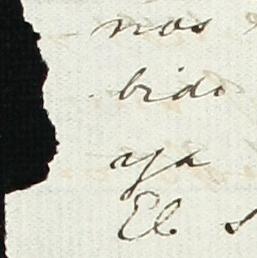 nos
bido
aya
El s